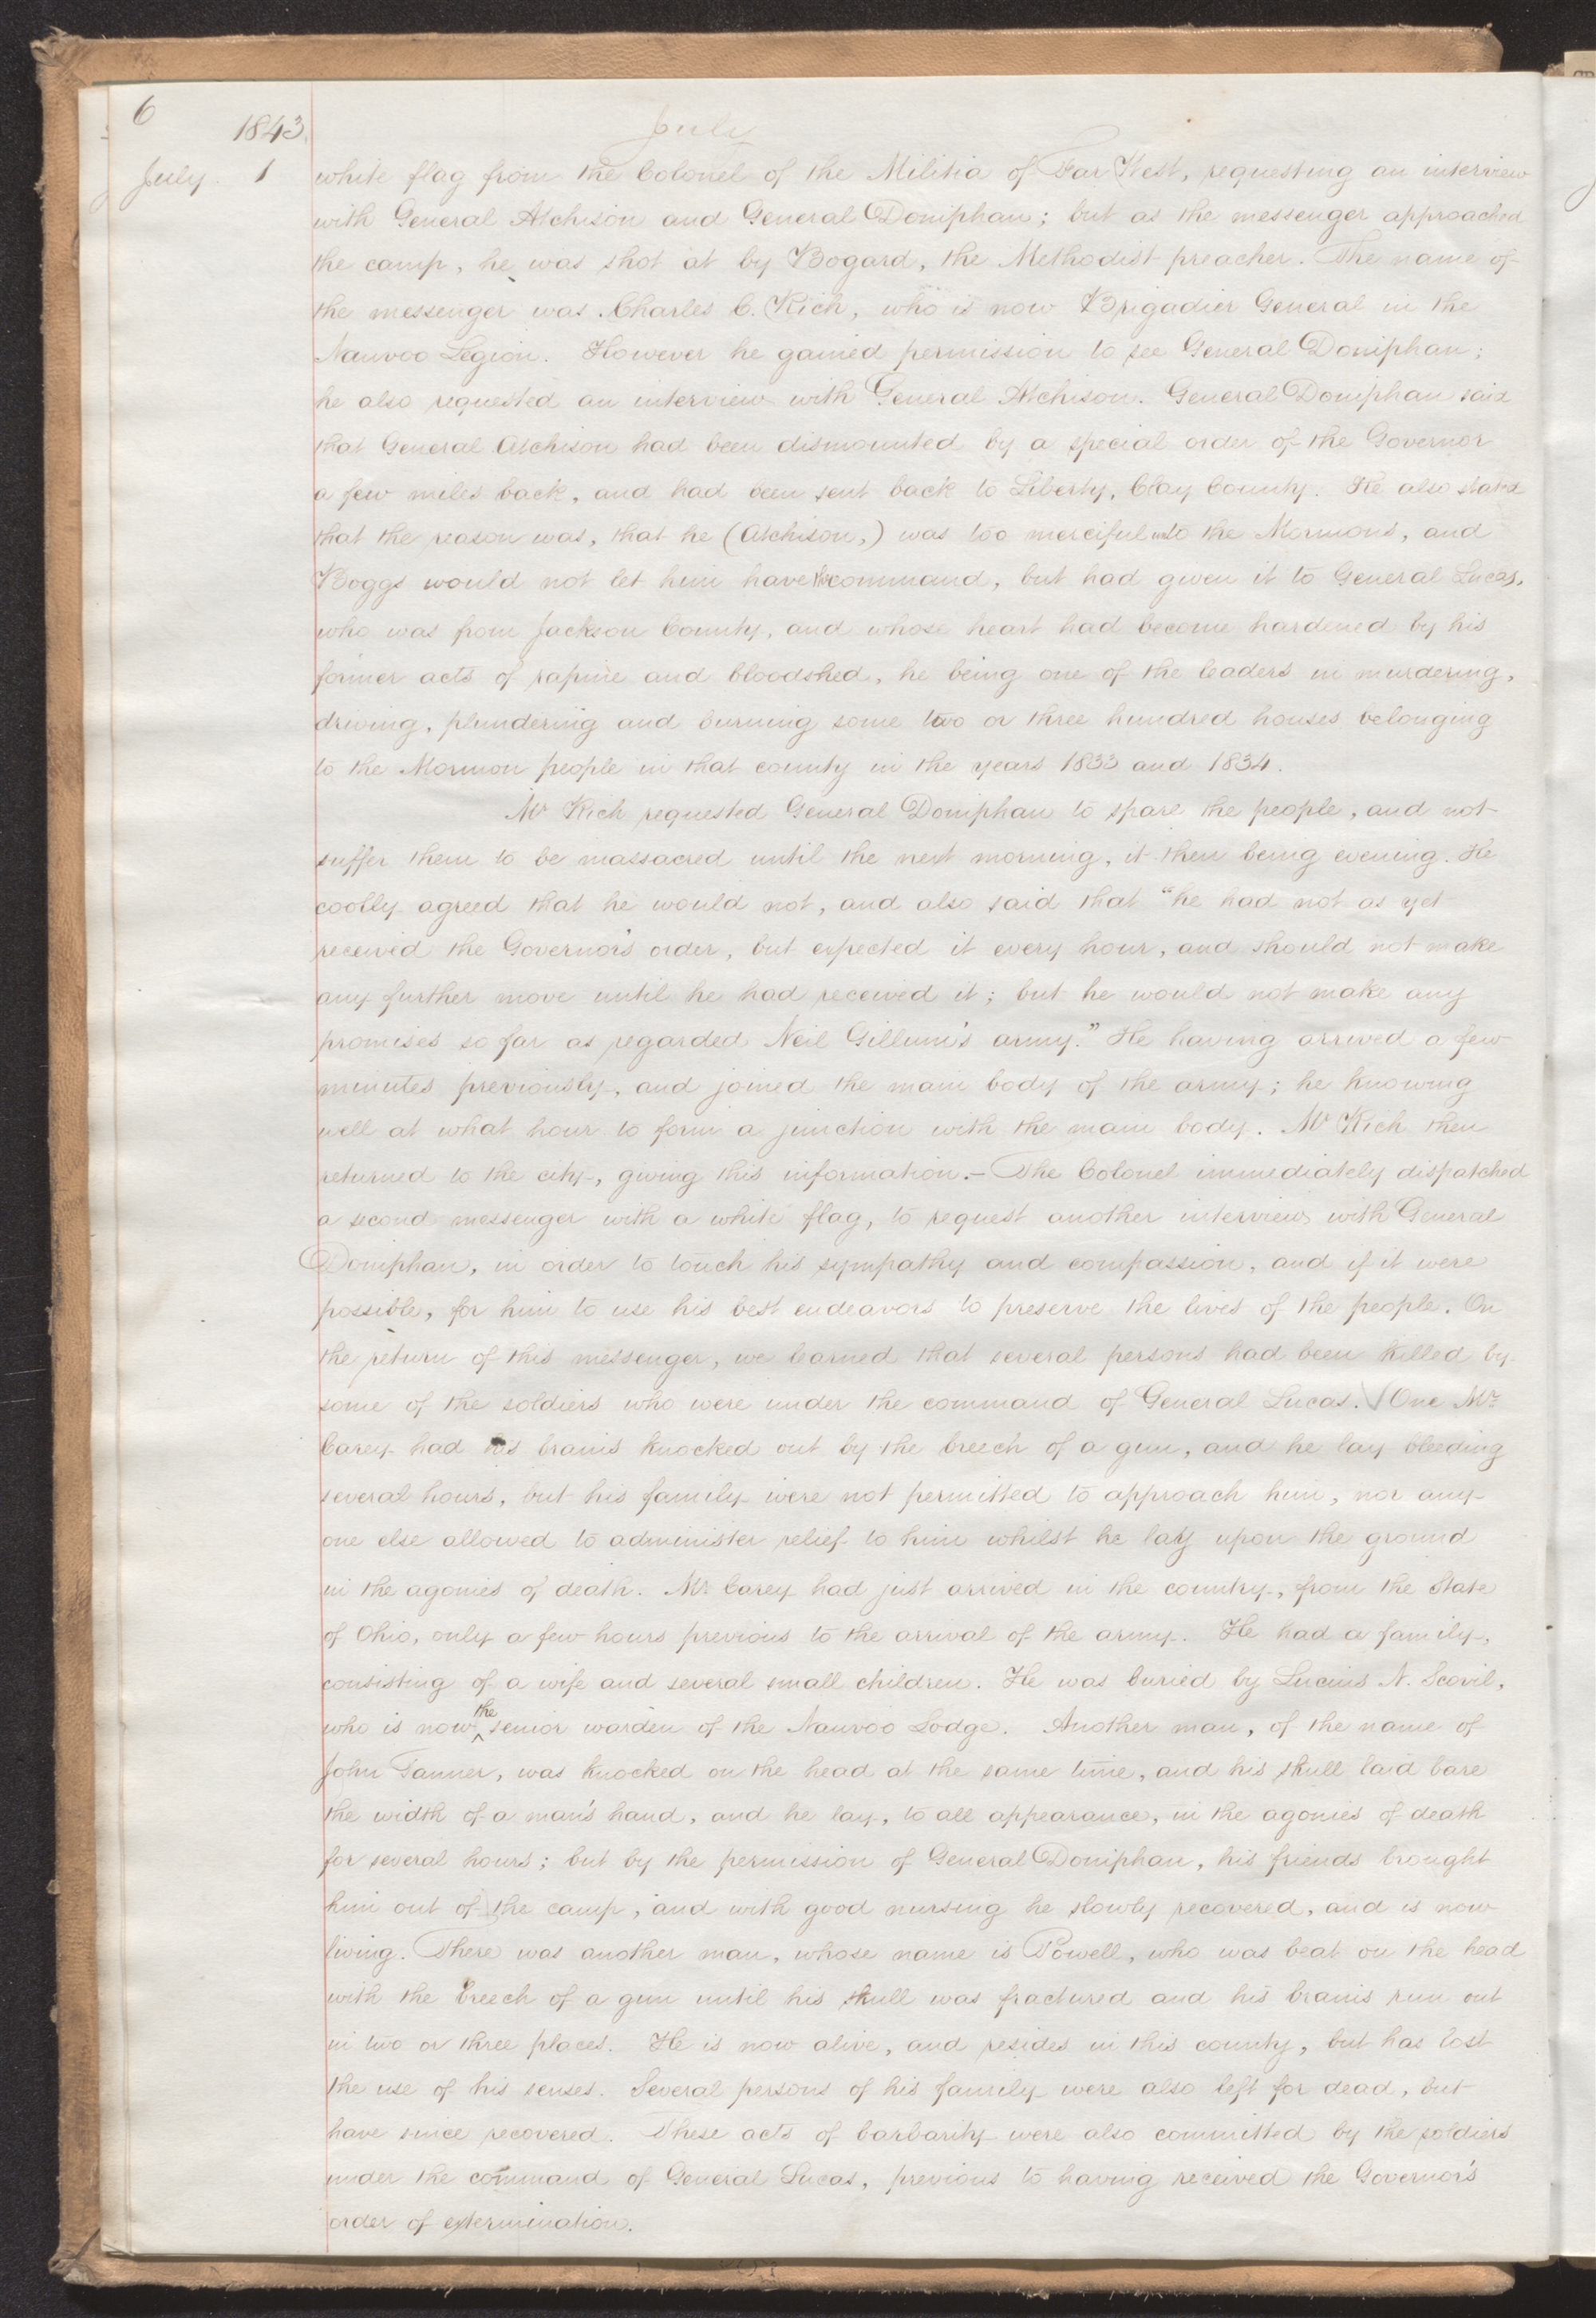 6
1843.
July
July. 1
white flag from the Colonel of the Militia of Far West, requesting an interview
with General Atchison and General Doniphan; but as the messenger approached
the camp, he was shot at by Bogard, the Methodist preacher. The name of
the messenger was Charles C. Rich, who is now Brigadier General in the
Nauvoo Legion. However he gained permission to see General Doniphan;
he also requested an interview with General Atchison. General Doniphan said
that General Atchison had been dismounted by a special order of the Governor
a few miles back, and had been sent back to Liberty, Clay County. He also stated
that the reason was, that he (Atchison,) was too merciful unto the Mormons, and
Boggs would not let him have the command, but had given it to General Lucas,
who was from Jackson County, and whose heart had become hardened by his
former acts of rapine and bloodshed, he being one of the leaders in murdering,
driving, plundering and burning some two or three hundred houses belonging
to the Mormon people in that county in the years 1833 and 1834.
Mr Rich requested General Doniphan to spare the people, and not
suffer them to be massacred until the next morning, it then being evening. He
coolly agreed that he would not, and also said that "he had not as yet
received the Governor's order, but expected it every hour, and should not make
any further move until he had received it; but he would not make any
promises so far as regarded Neil Gillum's army." He having arrived a few
minutes previously, and joined the main body of the army; he knowing
well at what hour to form a junction with the main body. Mr Rich then
returned to the city, giving this information.- The Colonel immediately dispatched
a second messenger with a white flag, to request another interview with General
Doniphan, in order to touch his sympathy and compassion, and if it were
possible, for him to use his best endeavors to preserve the lives of the people. On
the return of this messenger, we learned that several persons had been killed by
some of the soldiers who were under the command of General Lucas. One Mr.
Carey had his brains knocked out by the breech of a gun, and he lay bleeding
several hours, but his family were not permitted to approach him, nor any
one else allowed to administer relief to him whilst he lay upon the ground
in the agonies of death. Mr. Carey had just arrived in the country, from the State
of Ohio, only a few hours previous to the arrival of the army. He had a family,
consisting of a wife and several small children. He was buried by Lucius N. Scovil,
who is now the senior warden of the Nauvoo Lodge. Another man, of the name of
John Tanner, was knocked on the head at the same time, and his skull laid bare
the width of a man's hand, and he lay, to all appearance, in the agonies of death
for several hours; but by the permission of General Doniphan, his friends brought
him out of the camp, and with good nursing he slowly recovered, and is now
living. There was another man, whose name is Powell, who was beat on the head
with the breech of a gun until his skull was fractured and his brains run out
in two or three places. He is now alive, and resides in this county, but has lost
the use of his senses. Several persons of his family were also left for dead, but
have since recovered. These acts of barbarity were also committed by the soldiers
under the command of General Lucas, previous to having received the Governor's
order of extermination.